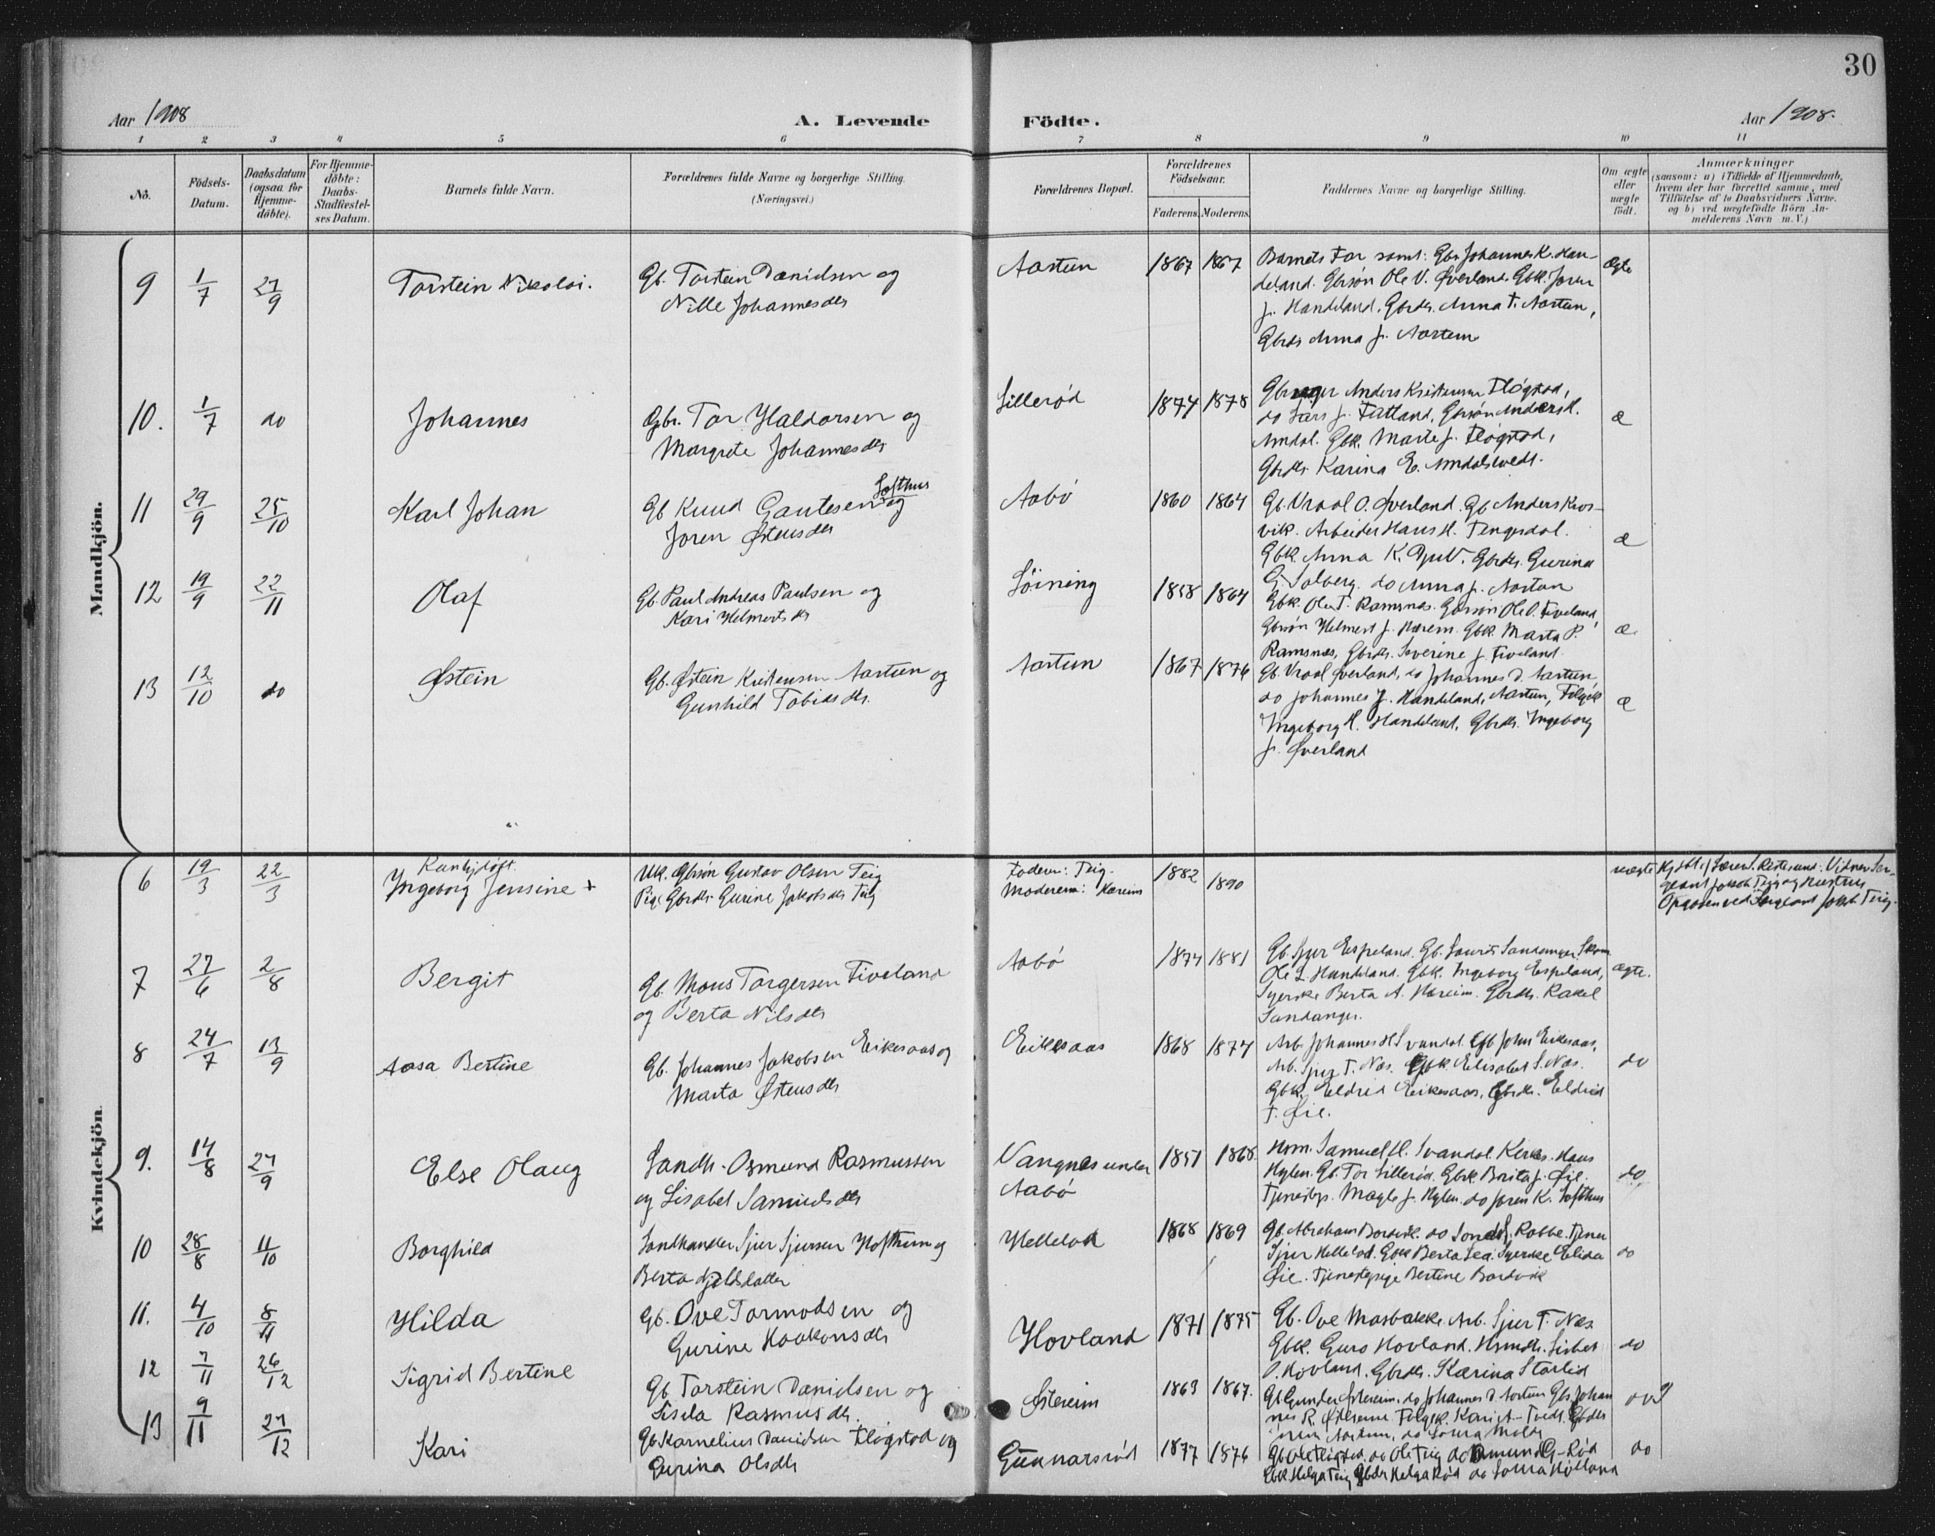 30
Aar 1908
A. Levende
Födte.
Aar 1908.
1 2 3 4 5 6 7 8 9 10 11
No.
Födsels-Datum.
Daabsdatum (ogsaa for Hjemme-döbte).
For Hjemme-döbte: Daabs-Stadfæstel-ses Datum.
Barnets fulde Navn.
Forældrenes fulde Navne og borgerlige Stilling. (Næringsvei.)
Forældrenes Bopæl.
Forældrenes Födselsaar.
Faderens. Moderens.
Faddernes Navne og borgerlige Stilling.
Om ægte eller uægte födt.
Anmærkninger
(saasom: a) i Tilfælde af Hjemmedaab,
hvem der har forrettet samme, med
Tilföielse af to Daabsvidners Navne,
og b) ved uægtefödte Börn An-
melderens Navn m. V.)
Mandkjön.
9 1/7 27/9 Torstein Nikolai.
Gb. Torstein Danielsen og
Nille Johannesdtr
Aartun 1867 1867
Barnets Far samt: Gbr Johannes K. Han-
deland. Gbrsøn Ole V. Øverland. Gbk. Joren
J. Handeland. Gbrdr. Anna T. Aartun,
Gbrdr Anna J. Aartun
ægte
10. 1/7 do Johannes
Gbr. Tor Haldorsen og
Margrete Johannesdtr
Lillerød 1874 1878
Anders Kristensen Fløgstad,
do Lars J. Fatland, Gbrsøn Anders H.
Amdal. Gbk. Marte J. Fløgstad,
Gbrdtr. Karina E. Amdalstvedt.
æ
11 29/9 25/10 Karl Johan
Gb Knud Gautesen Softhus og
Joren Østensdtr
Aabö 1860 1864
Gb. Vraal O. Øverland. Gb Anders Kros-
vik. Arbeider Hans H. Tengesdal.
Gbk. Anna K. Gbrdtr. Gurina
G. Solberg. do Anna J. Aartun
æ
12 19/9 22/11 Olaf
Gb. Paul Andreas Paulsen og
Kari Helmersdtr
Löining 1858 1864
Gbk. Ole T. Ramsnæs. Gbrsøn Ole O. Fiveland,
Gbrsøn Helmert J. Hæreim. Gbk. Marta P.
Ramsnæs, Gbrdtr. Severine J. Fiveland.
æ
13 12/10 do Østein
Gb. Østein Kristensen Aartun og
Gunhild Tobiasdtr.
Aartun 1867 1876
Gb. Vraal Øverland, do Johannes D. Aartun,
do Johannes J. Handeland, Aartun,
Ingeborg H. Handeland, Gbrdtr. Ingeborg
J. Øverland
æ
Kvindekjön.
6 19/3 22/3
Ingeborg Jensine +
Uk. Gbrsön Gustav Olsen Teig
Pige Gbrdtr. Gurine Jakobsdtr Teig
Faderen: Teig.
Moderens: Hæreim
1882 1890
uægte
7 27/6 2/8 Bergit
Gb. Mons Torgersen Fiveland
og Berta Nilsdtr
Aabö 1874 1881
Gb. Sjur Espeland. Gb. Laurits Sandanger,
Ole L. Handeland. Gbk. Ingeborg Espeland,
Syerske Berta A. Hæreim. Gbrdtr. Rakel
Sandanger.
ægte.
8 24/7 13/9 Aasa Bertine
Gb. Johannes Jakobsen Eikesaas og
Marta Østensdtr
Eikesaas 1868 1874
Arb. Johannes H. Svandal. Gb John Eikesaas,
Arb. Sjur T. Næs. Gbk Elisabet S. Næs.
Gbk. Eldrid Eikesaas, Gbrdtr. Eldrid
T. Øie.
do
9. 14/8 27/9 Else Olaug
Landh. Osmund Rasmussen
og Lisabet Samuelsdtr
Vangnes under
Aabö
1851 1868.
Hsm. Samuel H. Svandal Hans
Hylen. Gb. Tor Lillerød. Gbk Brita J. Øie.
Tjenestep. Magla J. Hylen. do Joren K. Softhus
do
10 28/8 11/10 Borghild
Landhandler Sjur Sjursen Hoftun og
Berta Kjeldsdatter
Hellelod 1868 1869
Gb. Abraham Bordvik. do Rabbe. Tjener
Sjur Hellelod. Gbk Berta Lea. Syerske Elida
Øie. Tjenestepige Bertine Bordvik
do
11. 4/10 8/11 Hilda
Gb. Ove Tormodsen og
Gurine Haakonsdtr
Hovland 1871 1875
Gb. Ove Mosbakke. Arb. Sjur T. Næs
Gbk. Guro Hovland. Lisbet
O. Hovland. Gbrdtr. Karina Størlid
do
12 7/11 26/12 Sigrid Bertine
Gb. Torstein Danielsen og
Lisela Rasmusdtr.
Østreim 1863 1867.
Gb Gunder Østreim. do Johannes D. Aartun Gbs Johan
nes R. Østreim
Aartun, do Laura Molde
do
13 9/11 27/12 Kari
Gb. Karnelius Danielsen Fløgstad og
Gurina Olsdtr
Gunnarsrød 1877 1876
Gb Ole Fløgstad. do Ole Teig do
Gbk Helga Teig Gbdtr Helga Rød do Laura Hölland
do